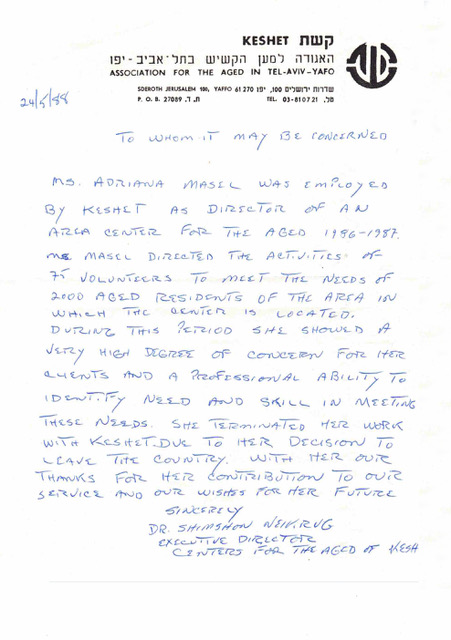 KESHET קשת
האגודה למען הקשיש בתל־אביב - יפו
ASSOCIATION FOR THE AGED IN TEL-AVIV-YAFO
SDEROTH JERUSALEM 100, YAFFO 61270 שדרות ירושלים 100, יפו
P. O. B. 27089 .ת. ד TEL. 03-810721 .טל
24/5/88
TO WHOM IT MAY BE CONCERNED
MS. ADRIANA MASEL WAS EMPLOYED
BY KESHET AS DIRECTOR OF AN
AREA CENTER FOR THE AGED 1986-1987.
MS MASEL DIRECTED THE ACTIVITIES OF
75 VOLUNTEERS TO MEET THE NEEDS OF
2000 AGED RESIDENTS OF THE AREA IN
WHICH THE CENTER IS LOCATED.
DURING THIS PERIOD SHE SHOWED A
VERY HIGH DEGREE OF CONCERN FOR HER
CLIENTS AND A PROFESSIONAL ABILITY TO
IDENTIFY NEED AND SKILL IN MEETING
THESE NEEDS. SHE TERMINATED HER WORK
WITH KESHET DUE TO HER DECISION TO
LEAVE THE COUNTRY. WITH HER OUR
THANKS FOR HER CONTRIBUTION TO OUR
SERVICE AND OUR WISHES FOR HER FUTURE
SINCERELY
DR. SHIMSHON NEIKRUG
EXECUTIVE DIRECTOR
CENTERS FOR THE AGED OF KESH